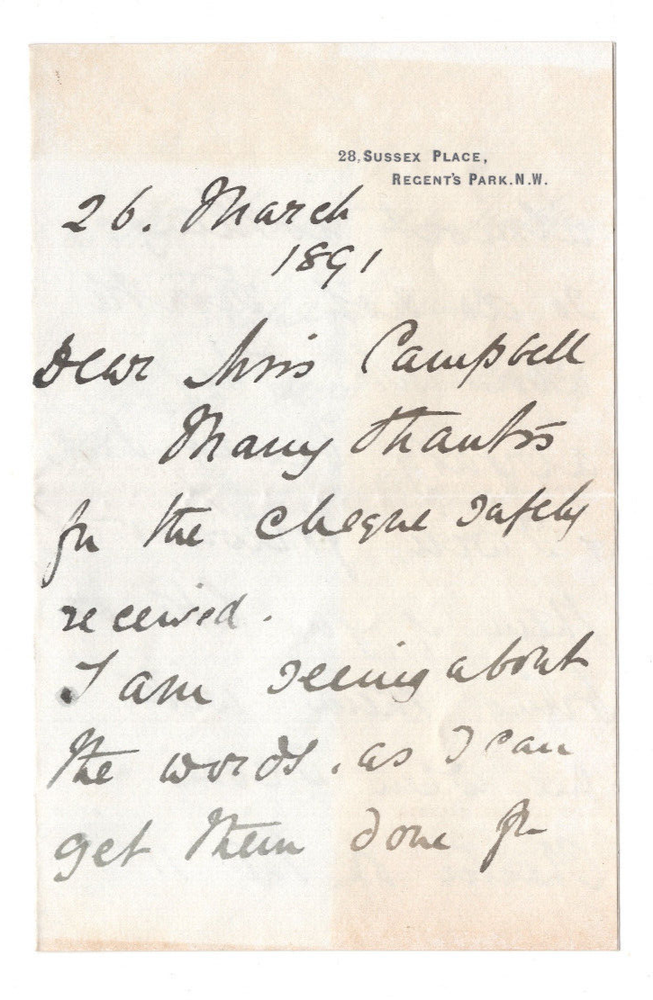 28, SUSSEX PLACE,
REGENT'S PARK. N.W.
26. March
1891
Dear Miss Campbell
Many thanks
for the cheque safely
received.
I am seeing about
the words, as I can
get them done for